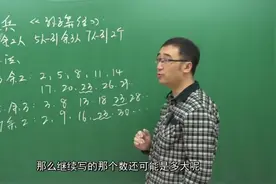 兵《孙子算经》
余2人 5人一列余3人 7人一列2个
法:
余2: 2, 5, 8, 11, 14
17, 20, 23, 26, 29.
余3: 3. 8 13 18 23 28 …
余2: 2, 9, 16, 23, 30 …
那么继续写的那个数还可能是多大呢